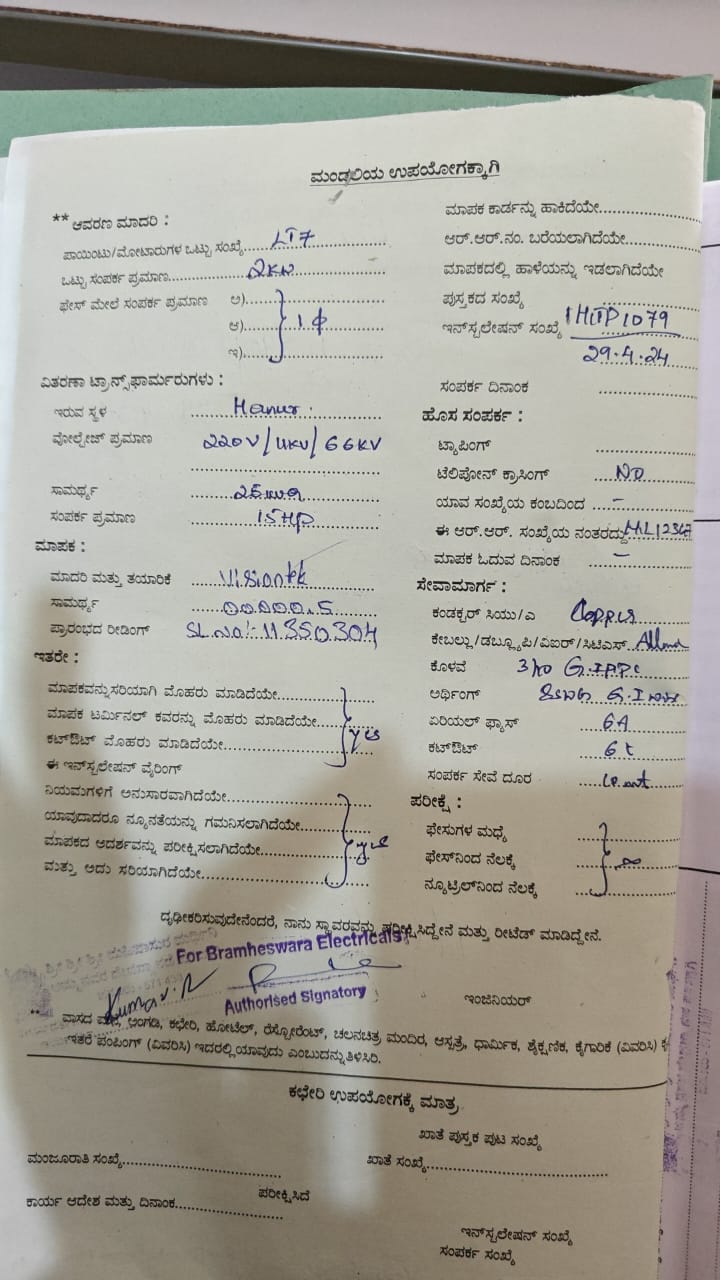 ಮಂಡಲಿಯ ಉಪಯೋಗಕ್ಕಾಗಿ
** ಆವರಣ ಮಾದರಿ :
ಪಾಯಿಂಟು/ಮೋಟಾರುಗಳ ಒಟ್ಟು ಸಂಖ್ಯೆ LT7
ಒಟ್ಟು ಸಂಪರ್ಕ ಪ್ರಮಾಣ 2KW
ಫೇಸ್ ಮೇಲೆ ಸಂಪರ್ಕ ಪ್ರಮಾಣ ಅ)
ಆ) 1 ф
ಇ)
ವಿತರಣಾ ಟ್ರಾನ್ಸ್‌ಫಾರ್ಮರುಗಳು :
ಇರುವ ಸ್ಥಳ Hanur
ವೋಲ್ಟೇಜ್ ಪ್ರಮಾಣ 220V/11KV/66KV
ಸಾಮರ್ಥ್ಯ
ಸಂಪರ್ಕ ಪ್ರಮಾಣ 15HP
ಮಾಪಕ :
ಮಾದರಿ ಮತ್ತು ತಯಾರಿಕೆ Visiontek
ಸಾಮರ್ಥ್ಯ 00000.5
ಪ್ರಾರಂಭದ ರೀಡಿಂಗ್ SL.No: 11350304
ಇತರೇ :
ಮಾಪಕವನ್ನು ಸರಿಯಾಗಿ ಮೊಹರು ಮಾಡಿದೆಯೇ
ಮಾಪಕ ಟರ್ಮಿನಲ್ ಕವರನ್ನು ಮೊಹರು ಮಾಡಿದೆಯೇ
ಕಟ್‌ಔಟ್ ಮೊಹರು ಮಾಡಿದೆಯೇ yes
ಈ ಇನ್‌ಸ್ಟಲೇಷನ್ ವೈರಿಂಗ್
ನಿಯಮಗಳಿಗೆ ಅನುಸಾರವಾಗಿದೆಯೇ
ಯಾವುದಾದರೂ ನ್ಯೂನತೆಯನ್ನು ಗಮನಿಸಲಾಗಿದೆಯೇ
ಮಾಪಕದ ಆದರ್ಶವನ್ನು ಪರೀಕ್ಷಿಸಲಾಗಿದೆಯೇ yes
ಮತ್ತು ಅದು ಸರಿಯಾಗಿದೆಯೇ
ಮಾಪಕ ಕಾರ್ಡನ್ನು ಹಾಕಿದೆಯೇ
ಆರ್.ಆರ್.ನಂ. ಬರೆಯಲಾಗಿದೆಯೇ
ಮಾಪಕದಲ್ಲಿ ಹಾಳೆಯನ್ನು ಇಡಲಾಗಿದೆಯೇ
ಪುಸ್ತಕದ ಸಂಖ್ಯೆ
ಇನ್‌ಸ್ಟಲೇಷನ್ ಸಂಖ್ಯೆ HTP1079
29.4.24
ಸಂಪರ್ಕ ದಿನಾಂಕ
ಹೊಸ ಸಂಪರ್ಕ :
ಟ್ಯಾಪಿಂಗ್
ಟೆಲಿಪೋನ್ ಕ್ರಾಸಿಂಗ್ NO
ಯಾವ ಸಂಖ್ಯೆಯ ಕಂಬದಿಂದ –
ಈ ಆರ್.ಆರ್. ಸಂಖ್ಯೆಯ ನಂತರದ್ದು
ಮಾಪಕ ಓದುವ ದಿನಾಂಕ –
ಸೇವಾಮಾರ್ಗ :
ಕಂಡಕ್ಟರ್ ಸಿಯು/ಎ Copper
ಕೇಬಲ್ಲು/ಡಬ್ಲ್ಯೂಪಿ/ವಿಐಆರ್/ಸಿಟಿಎಸ್
ಕೊಳವೆ
ಅರ್ಥಿಂಗ್ 8SWG G.I
ಏರಿಯಲ್ ಫ್ಯಾಸ್ 6A
ಕಟ್‌ಔಟ್
ಸಂಪರ್ಕ ಸೇವೆ ದೂರ
ಪರೀಕ್ಷೆ :
ಫೇಸುಗಳ ಮಧ್ಯೆ
ಫೇಸ್‌ನಿಂದ ನೆಲಕ್ಕೆ ∞
ನ್ಯೂಟ್ರಿಲ್‌ನಿಂದ ನೆಲಕ್ಕೆ
ದೃಢೀಕರಿಸುವುದೇನೆಂದರೆ, ನಾನು ಸ್ಥಾವರವನ್ನು ಪರೀಕ್ಷಿಸಿದ್ದೇನೆ ಮತ್ತು ರೀಟೆಡ್ ಮಾಡಿದ್ದೇನೆ.
For Bramheswara Electricals
Kumar.R
Authorised Signatory
ಇಂಜಿನಿಯರ್
** ವಾಸದ ಮನೆ, ಅಂಗಡಿ, ಕಛೇರಿ, ಹೋಟೆಲ್, ರೆಸ್ಟೋರೆಂಟ್, ಚಲನಚಿತ್ರ ಮಂದಿರ, ಆಸ್ಪತ್ರೆ, ಧಾರ್ಮಿಕ, ಶೈಕ್ಷಣಿಕ, ಕೈಗಾರಿಕೆ (ವಿವರಿಸಿ)
ಇತರೆ ಪಂಪಿಂಗ್ (ವಿವರಿಸಿ) ಇದರಲ್ಲಿ ಯಾವುದು ಎಂಬುದನ್ನು ತಿಳಿಸಿರಿ.
ಕಛೇರಿ ಉಪಯೋಗಕ್ಕೆ ಮಾತ್ರ
ಖಾತೆ ಪುಸ್ತಕ ಪುಟ ಸಂಖ್ಯೆ
ಮಂಜೂರಾತಿ ಸಂಖ್ಯೆ
ಖಾತೆ ಸಂಖ್ಯೆ
ಪರೀಕ್ಷಿಸಿದೆ
ಕಾರ್ಯ ಆದೇಶ ಮತ್ತು ದಿನಾಂಕ
ಇನ್‌ಸ್ಟಲೇಷನ್ ಸಂಖ್ಯೆ
ಸಂಪರ್ಕ ಸಂಖ್ಯೆ